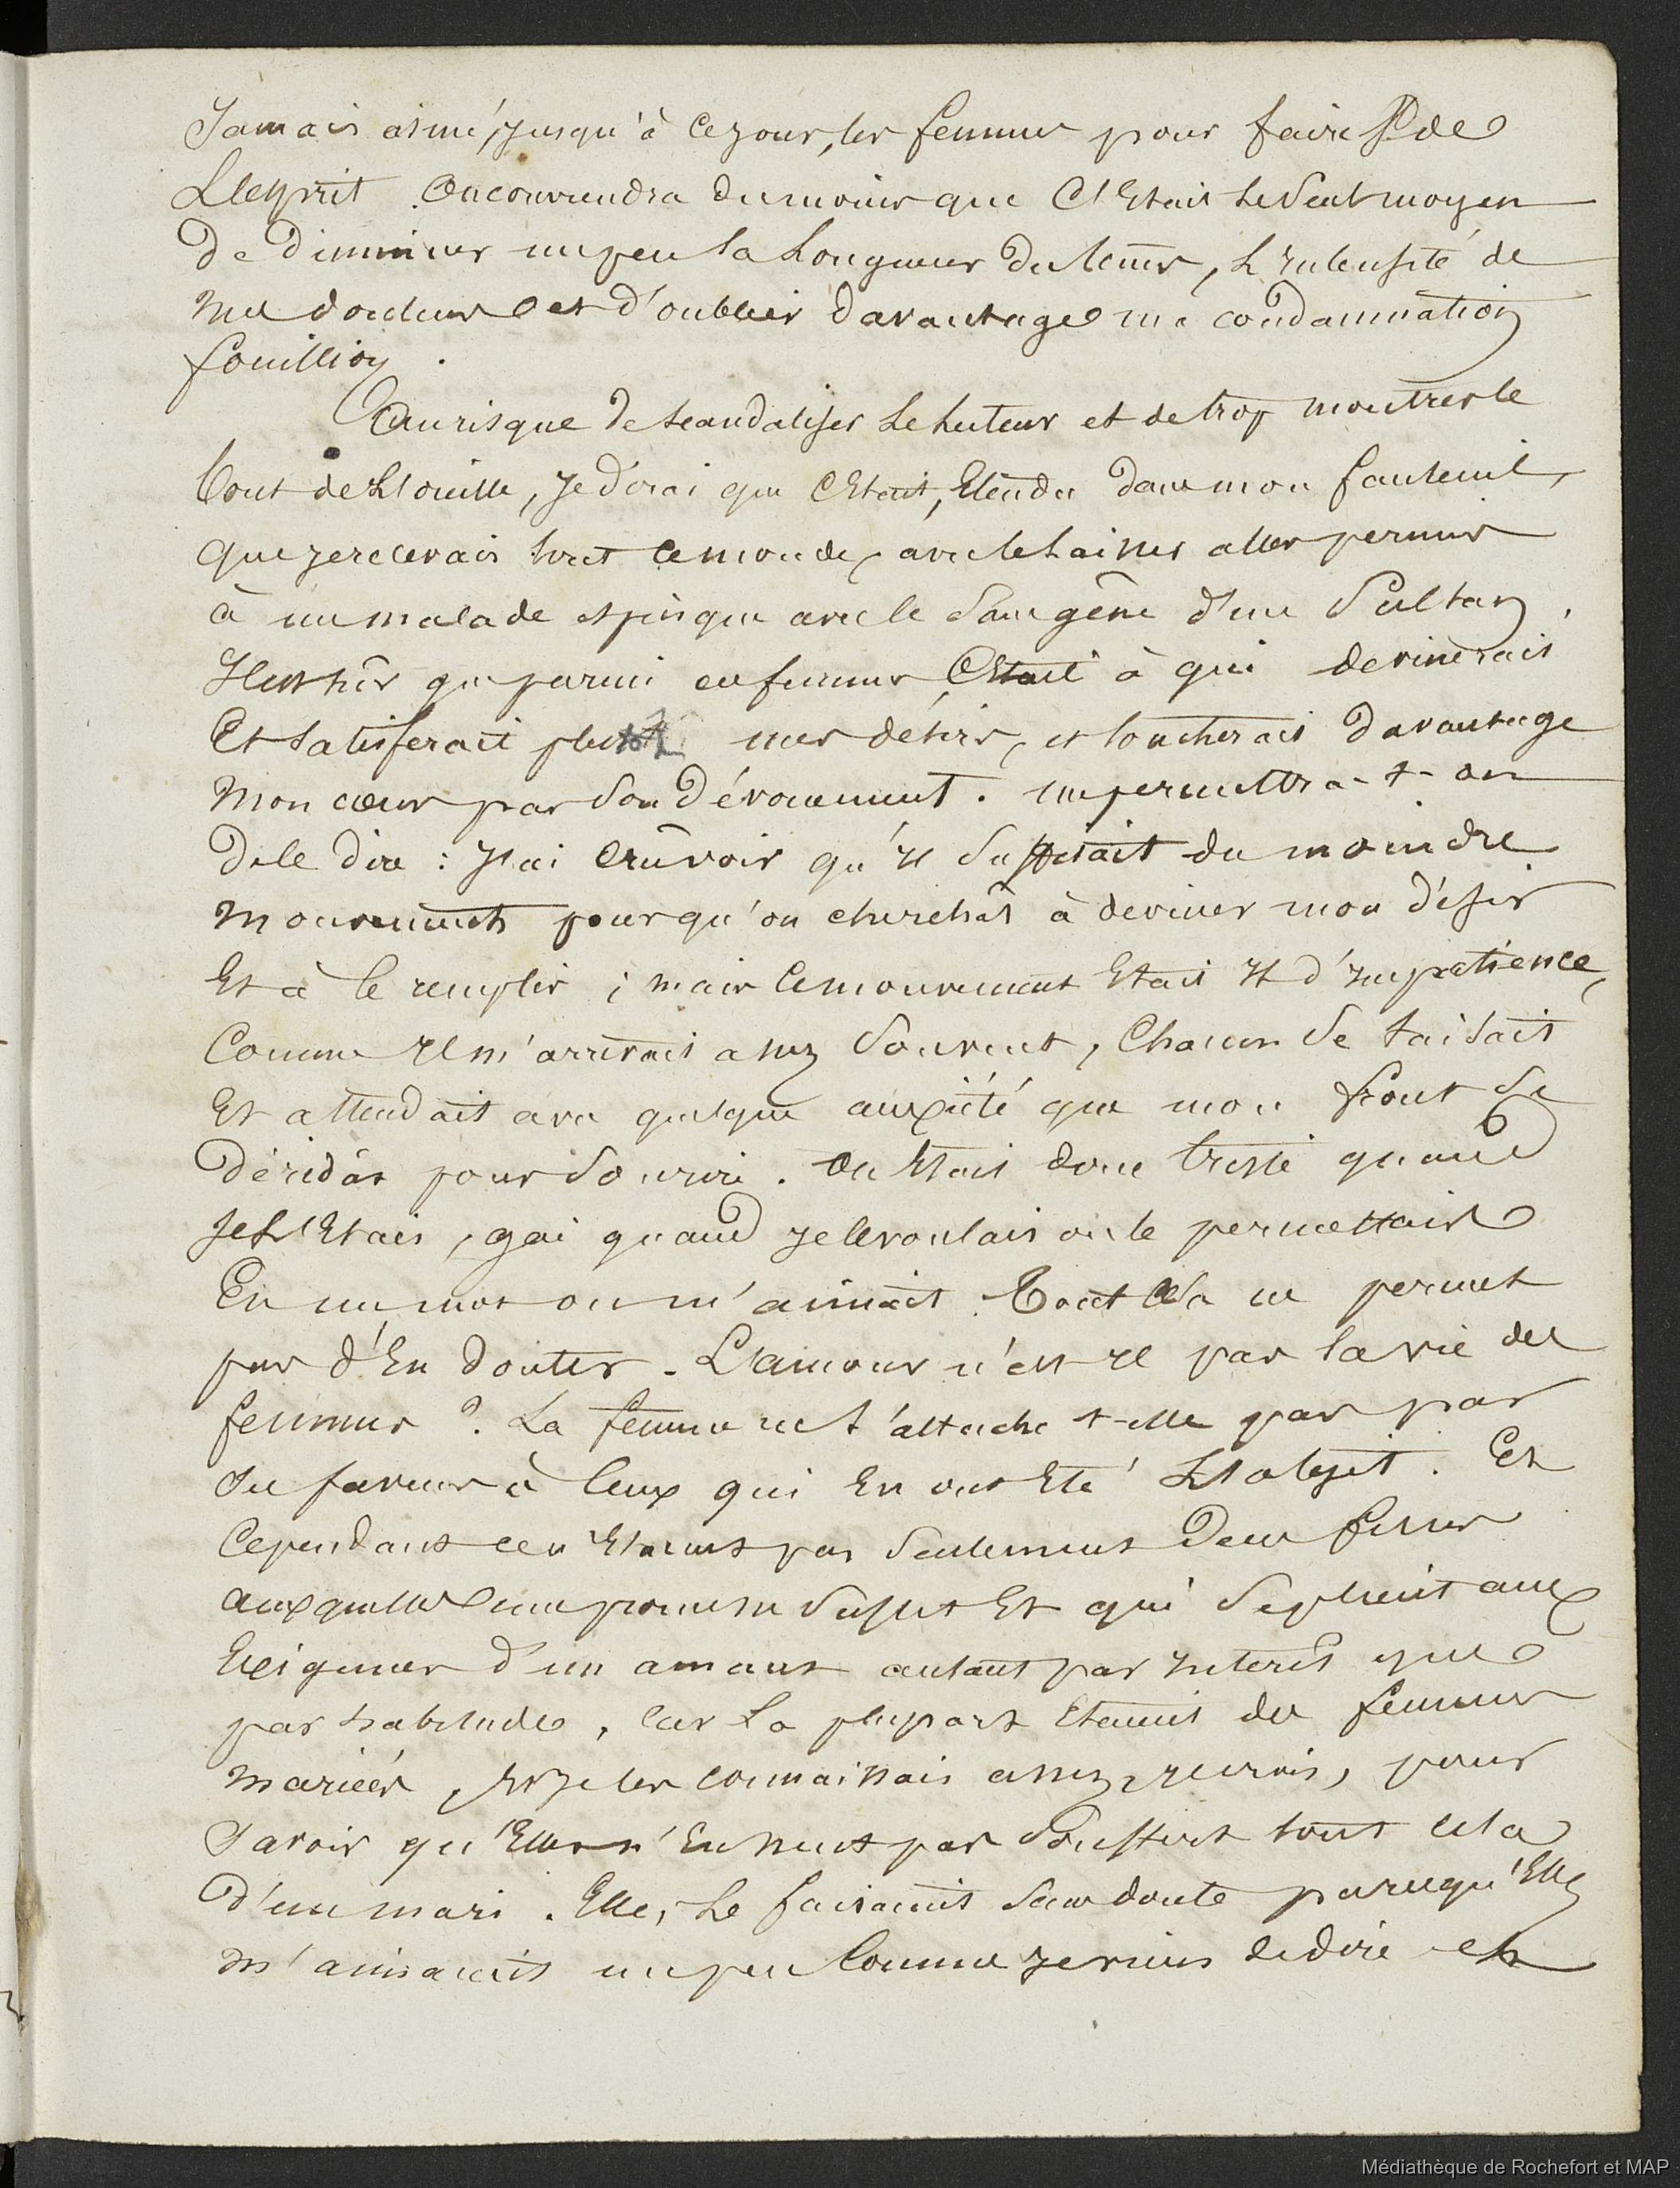 Jamais aimé, jusqu'à ce jour, les femmes pour faire de
L'esprit. On conviendra du moins que C'Etait le Seul moyen
De Diminuer un peu la Longueur du tems, L'intensité de
mes douleurs et d'oublier davantage ma condamnation
fouillioy.
Au risque de scandaliser Le Lecteur et de trop montrer le
bout de L'oreille, je dirai que C'Etait, Etendu dans mon fauteuil,
que je recevais tout ce monde, avec le laisser aller permis
à un malade et puis que avec le Sans gêne d'un Sultan,
Il est sûr que parmi ces femmes C'Etait à qui devinerait
Et Satisferait plustôt mes désirs, et toucherait Davantage
mon cœur par Son Dévouement. me permettra-t-on
De le dire : J'ai crû voir qu'il Suffisait du moindre
mouvement pour qu'on cherchât à deviner mon désir
Et à le remplir ; mais ce mouvement Etait il d'impatience,
Comme il m'arrivait assez Souvent, Chacun Se taisait
Et attendait avec quelque anxiété que mon front Se
Déridât pour Sourire. On Etait donc triste quand
je L'Etais, gai quand je le voulais ou le permettais
En un mot on m'aimait. Tout cela ne permet
pas d'En Douter. L'amour n'est il pas la vie des
femmes ? La femme ne s'attache t-elle pas par
Ses faveurs à Ceux qui En ont Eté L'objet. Et
Cependant ce n'Etaient pas Seulement Des filles
auxquelles une promesse Suffit Et qui Se plient aux
Exigences d'un amant autant par interêt que
par habitude, Car La plupart Etaient des femmes
mariées, Et je les connaissais assez, je crois, pour
Savoir qu'Elles n'Eussent pas Souffert tout cela
d'un mari. Elles Le faisaient Sans doute parcequ'Elles
m'aimaient un peu Comme je viens de dire et
Médiathèque de Rochefort et MAP